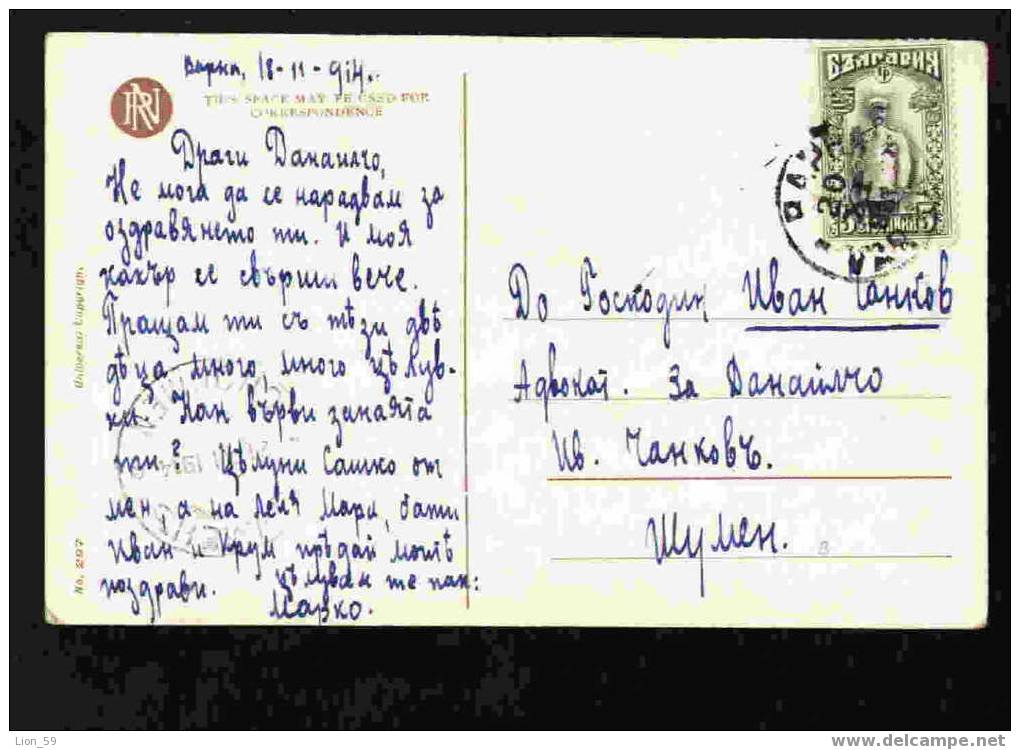 Варна, 18-11-914.
RN
THIS SPACE MAY BE USED FOR
CORRESPONDENCE
Драги Данаилчо,
Не мога да се нарадвам за
оздравянето ти. И моя
кахър се свърши вече.
Пращам ти съ тѣзи двѣ
дѣца много, много цѣлув-
ки. Как върви занаята
ти? Цѣлуни Сашко от
мен, а на леля Мара, бати
Иван и Крум прѣдай моитѣ
поздрави. Цѣлувам те пак:
Марко.
Universal Copyright.
No. 297
БЪЛГАРИЯ
5 5
ВАРНА
20
До Господин Иван Чанков
Адвокат. За Данаилчо
Ив. Чанковъ.
Шумен.
Lion_59
www.delcampe.net